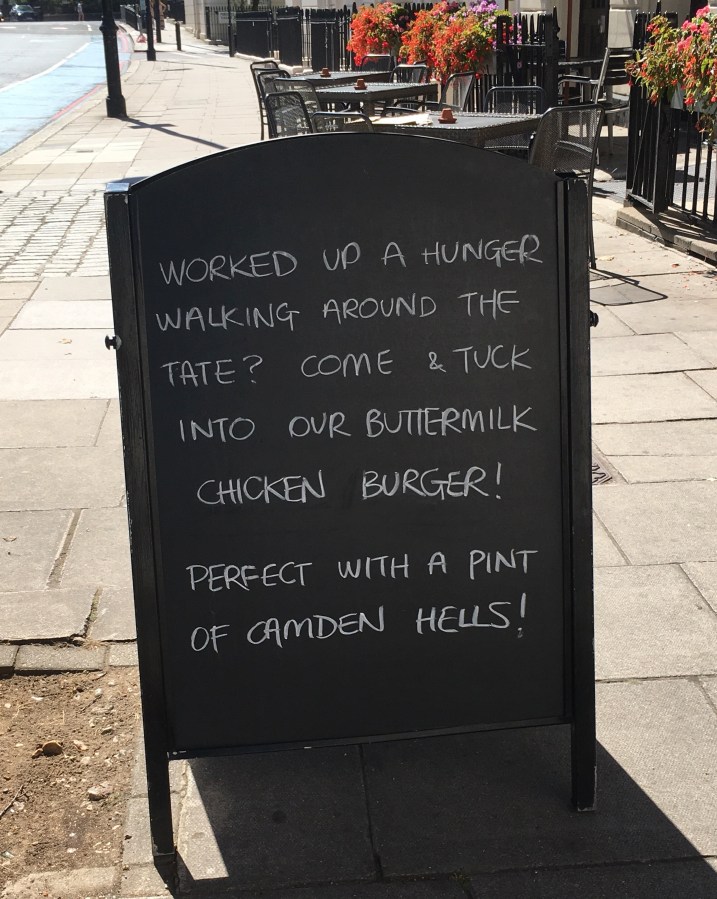 WORKED UP A HUNGER
WALKING AROUND THE
TATE? COME & TUCK
INTO OUR BUTTERMILK
CHICKEN BURGER!
PERFECT WITH A PINT
OF CAMDEN HELLS!